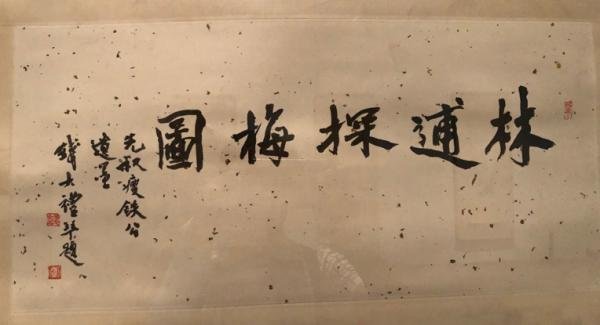 林逋探梅圖
先叔瘦鉄公
遺墨
錢大禮拜題